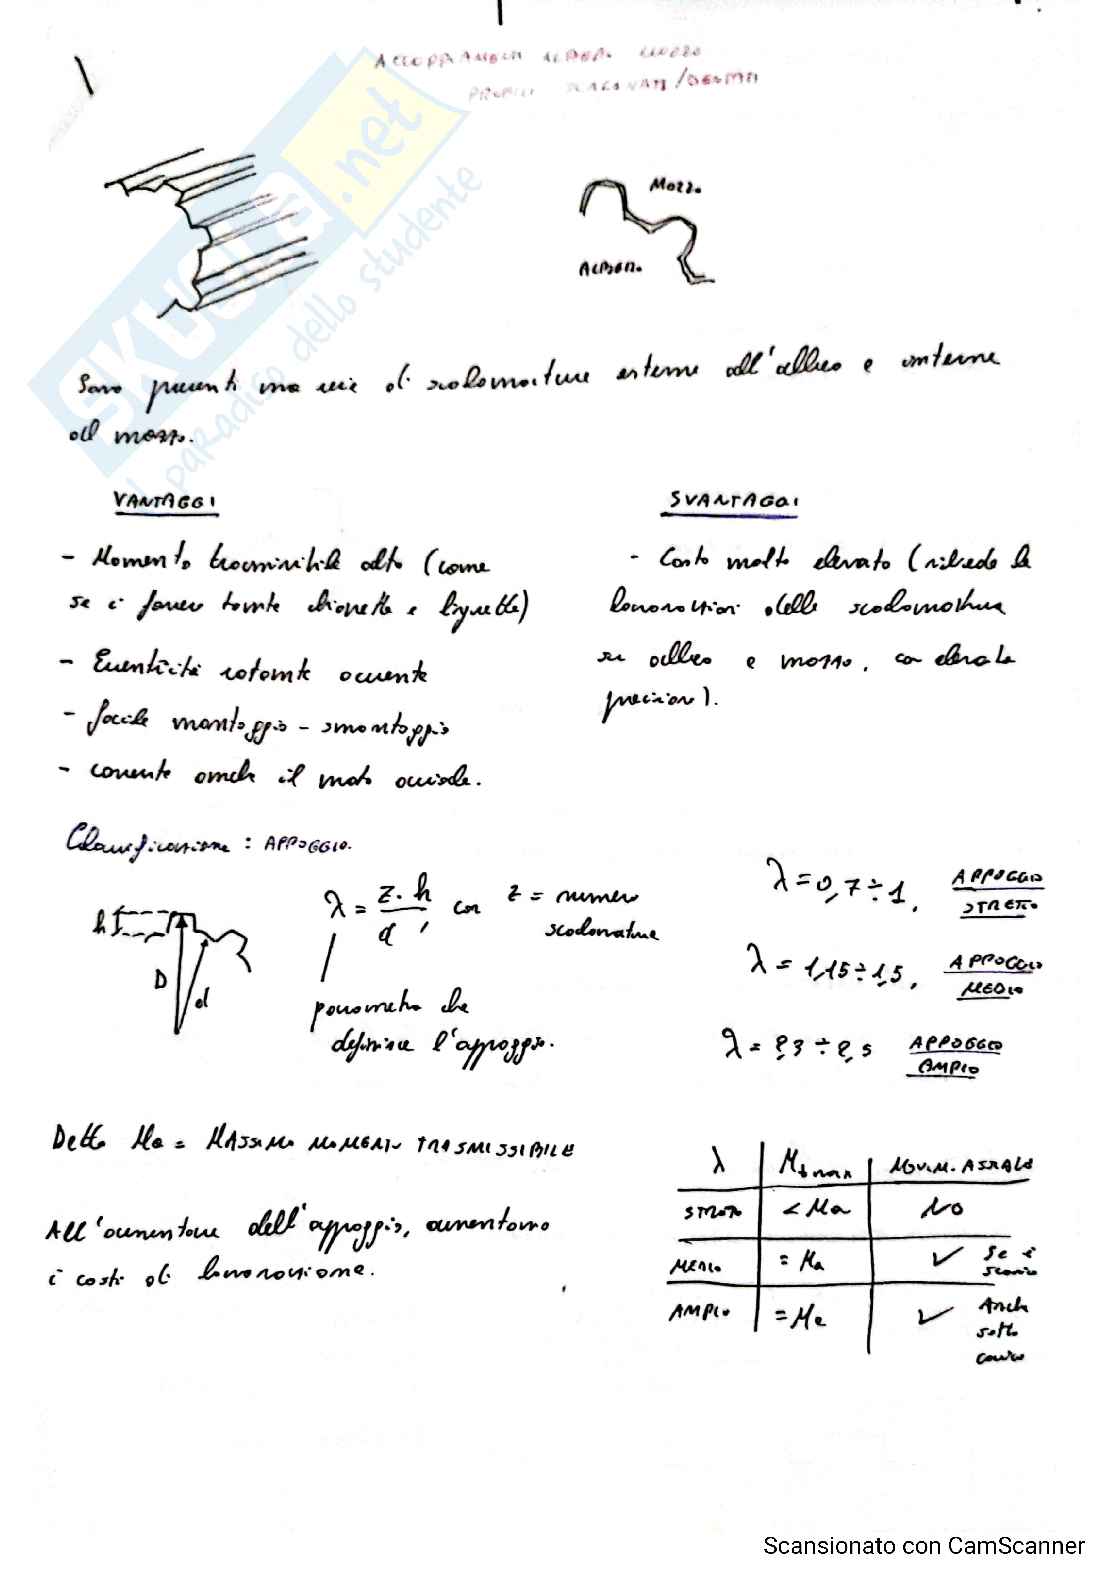 ACCOPPIAMENTI ALBERO MOZZO
PROFILI SCALANATI/DENTATI
SKUOLA.net
il paradiso dello studente
Mozzo
ALBERO
Sono presenti una serie di scalanature esterne all'albero e interne
al mozzo.
VANTAGGI
- Momento trasmissibile alto (come
se ci fossero tante chiavette e linguette)
- Eccentricità rotante assente
- facile montaggio - smontaggio
- consente anche il moto assiale.
SVANTAGGI
- Costo molto elevato (richiede la
lavorazione delle scalanature
su albero e mozzo, con elevata
precisione).
Classificazione: APPOGGIO.
h
D
d
λ = z·h/d, con z = numero
scalanature
parametro che
definisce l'appoggio.
λ = 0,7 ÷ 1, APPOGGIO
STRETTO
λ = 1,15 ÷ 1,5, APPOGGIO
MEDIO
λ = 2,3 ÷ 2,5 APPOGGIO
AMPIO
Detto Ma = MASSIMO MOMENTO TRASMISSIBILE
All'aumentare dell'appoggio, aumentano
i costi di lavorazione.
λ Mt max MOVIM. ASSIALE
STRETTO < Ma NO
MEDIO = Ma ✓ Se è
scarico
AMPIO = Ma ✓ Anche
sotto
carico
Scansionato con CamScanner